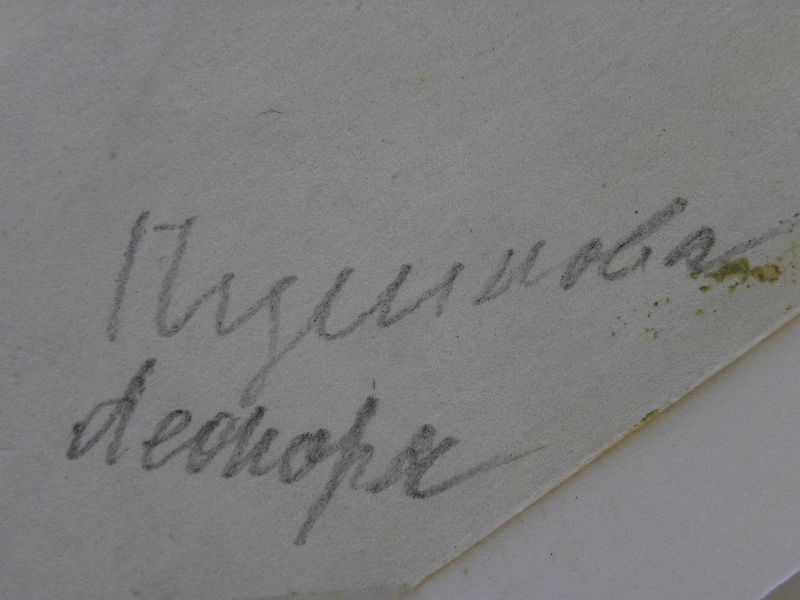 Пушкова
Леонора